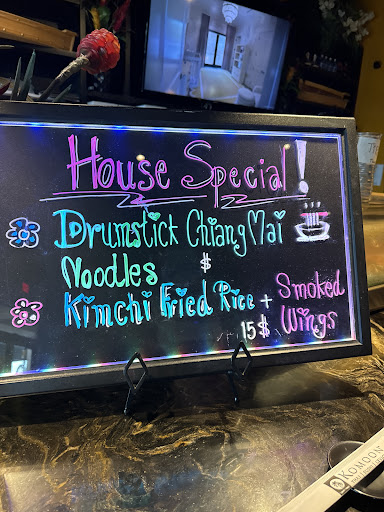 House Special!
Drumstick Chiang Mai
Noodles $
Kimchi Fried Rice + Smoked
Wings
15$
KOMOON